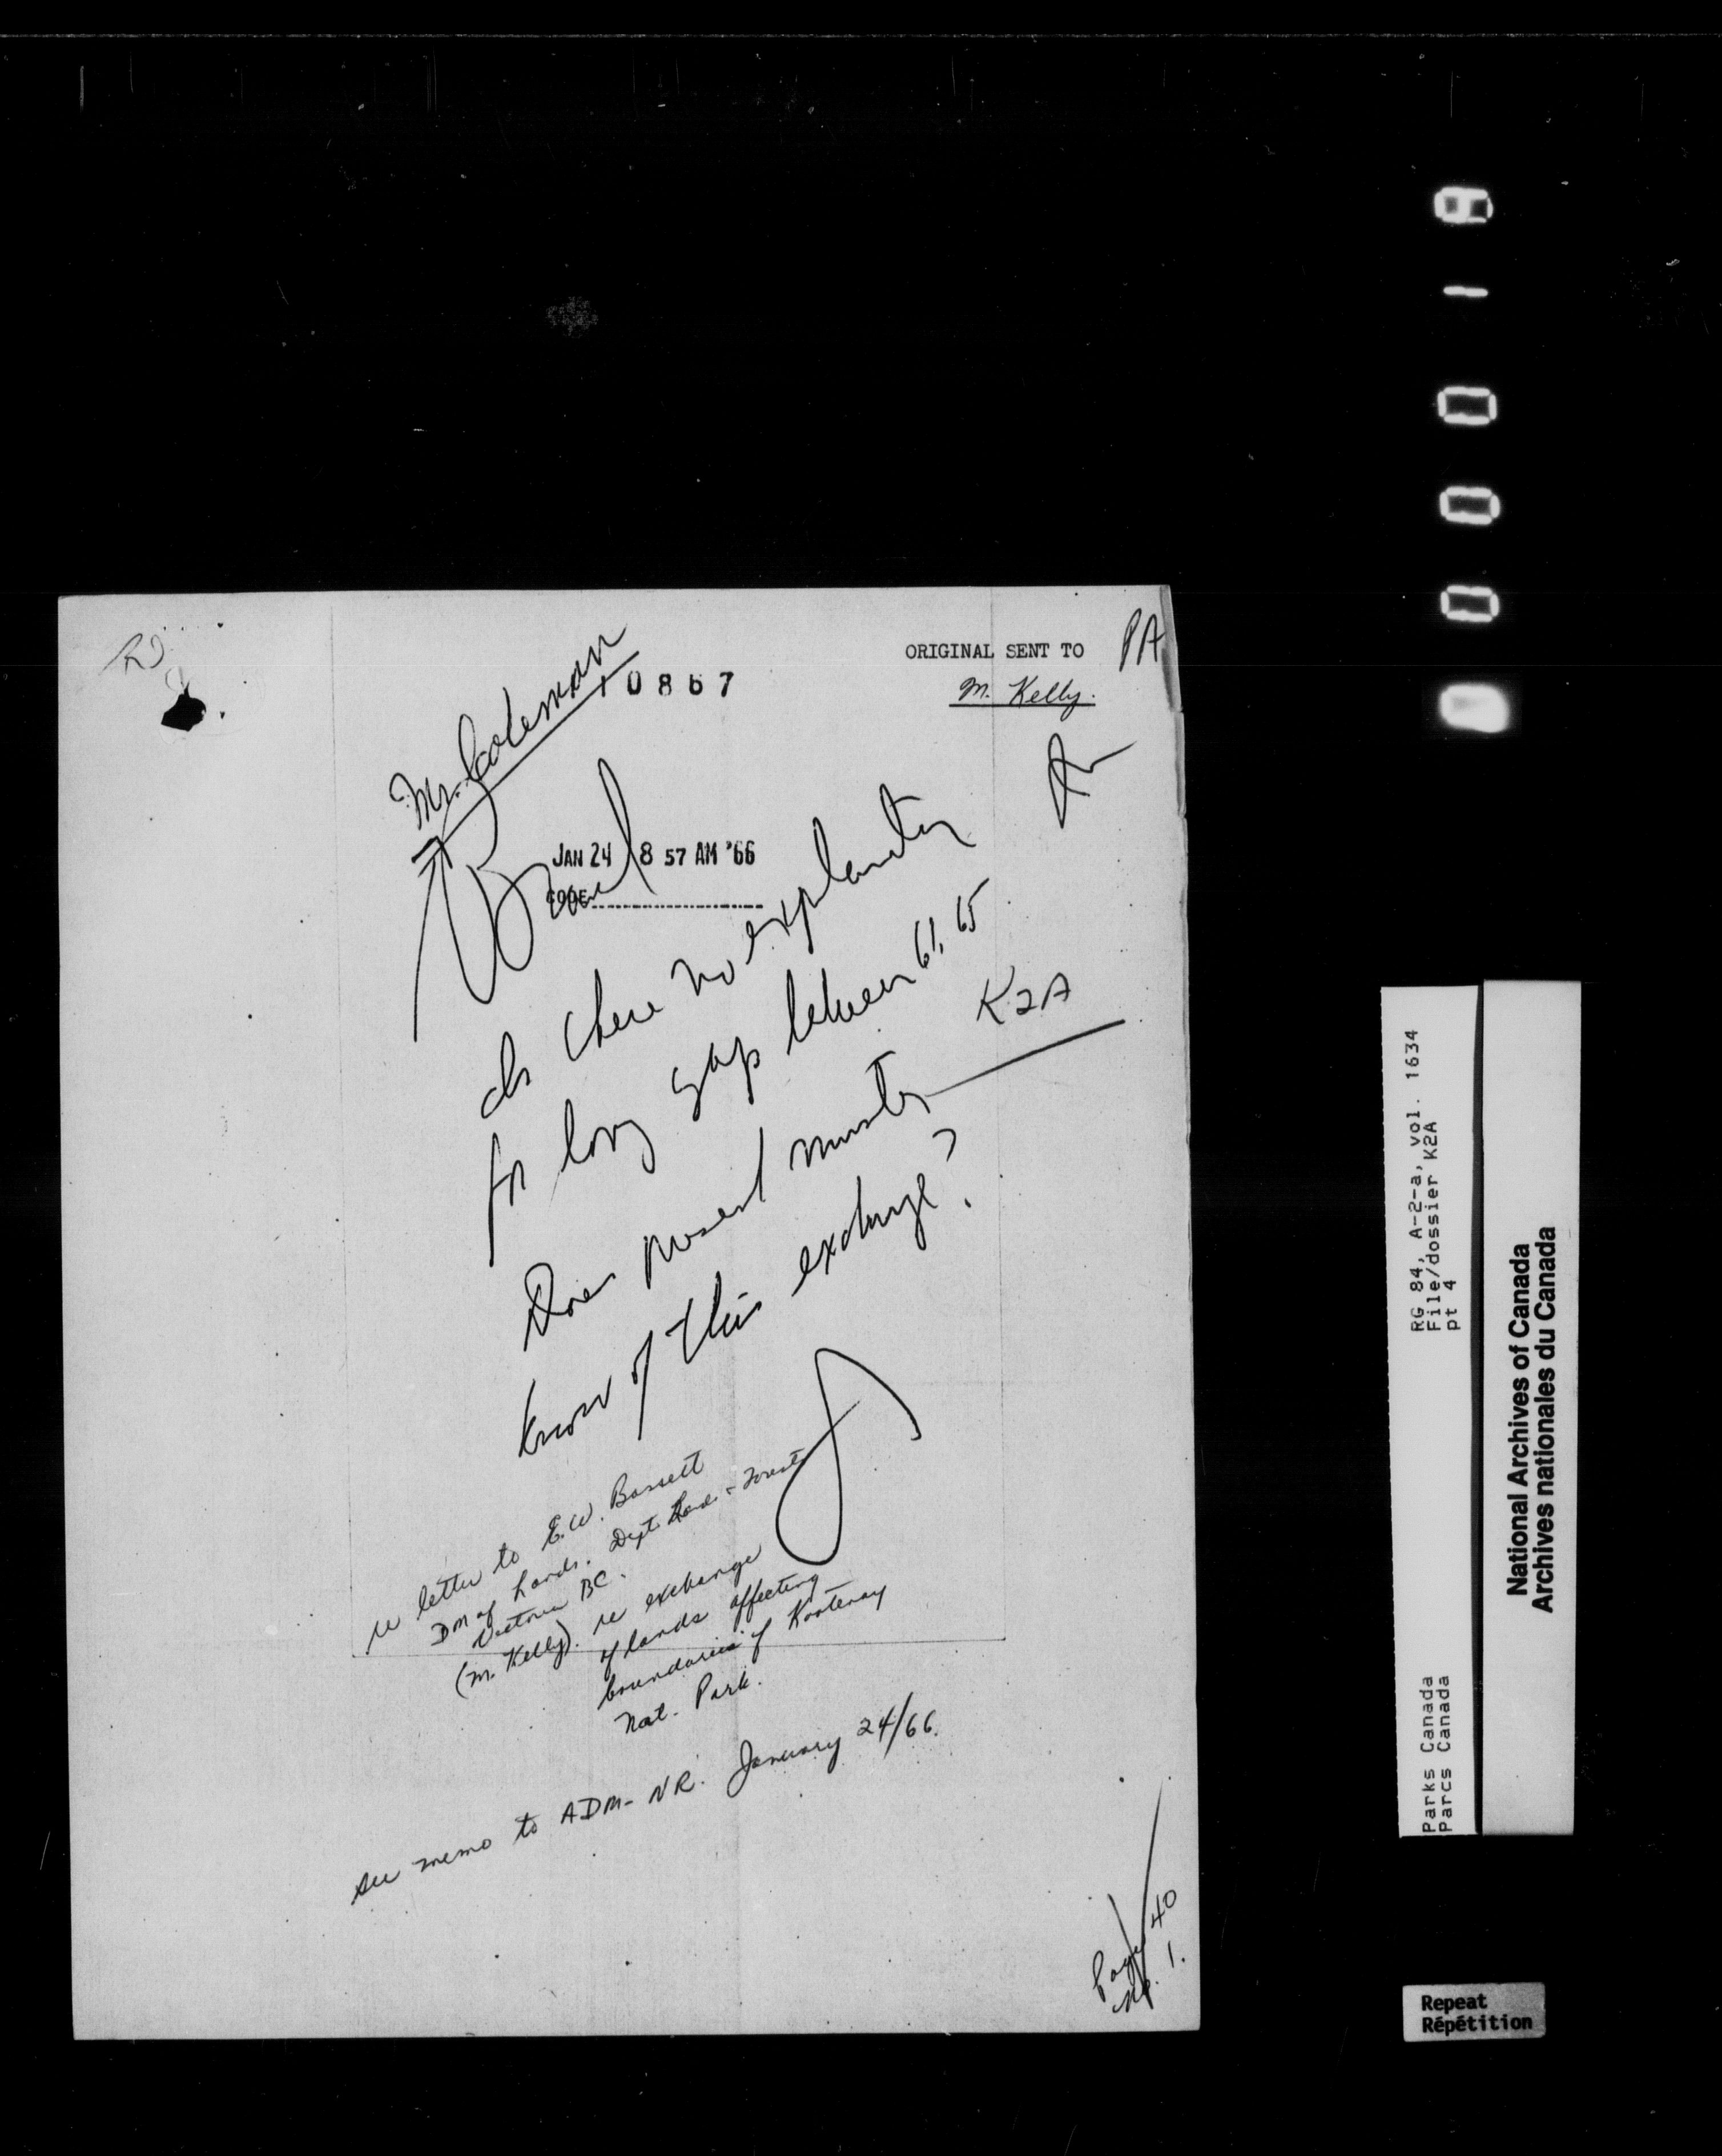 ORIGINAL SENT TO
M. Kelly.
PA
Mr. Coleman
10867
JAN 24 8 57 AM '66
CODE
Is there no explanation
for long gap between 61, 65
K2A
Does present minister
know of this exchange?
re letter to E.W. Bassett
DM of Lands. Dept Lands & Forests
Victoria BC.
(M. Kelly). re exchange
of lands affecting
boundaries of Kootenay
Nat. Park.
see memo to ADM-NR. January 24/66.
Page 40
1.
RG 84, A-2-a, vol. 1634
File/dossier K2A
pt 4
Parks Canada
Parcs Canada
National Archives of Canada
Archives nationales du Canada
Repeat
Répétition